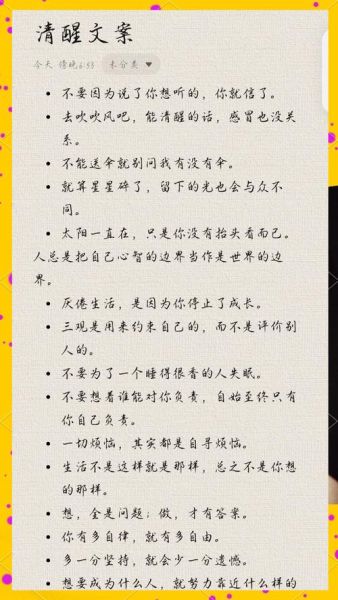 清醒文案
今天 傍晚6:53 未分类
不要因为说了你想听的，你就信了。
去吹吹风吧，能清醒的话，感冒也没关
系。
不能送伞就别问我有没有伞。
就算星星碎了，留下的光也会与众不
同。
太阳一直在，只是你没有抬头看而已。
人总是把自己心智的边界当作是世界的边
界。
厌倦生活，是因为你停止了成长。
三观是用来约束自己的，而不是评价别
人的。
不要为了一个睡得很香的人失眠。
不要想着谁能对你负责，自始至终只有
你自己负责。
一切烦恼，其实都是自寻烦恼。
生活不是这样就是那样，总之不是你想
的那样。
想，全是问题；做，才有答案。
你有多自律，就有多自由。
多一分坚持，就会少一分遗憾。
想要成为什么人，就努力靠近什么样的